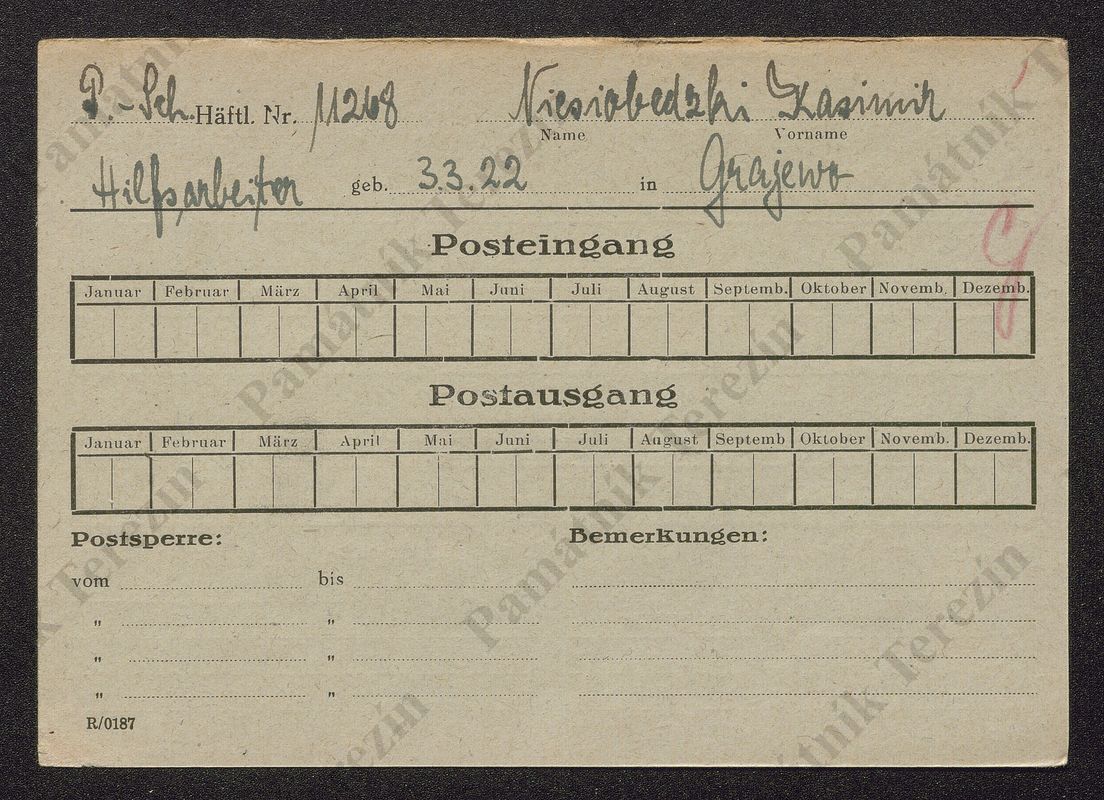 P.-Sch. Häftl. Nr. 11268 Niesiobedzki Kasimir
Name Vorname
Hilfsarbeiter geb. 3.3.22 in Grajewo
Posteingang
Januar Februar März April Mai Juni Juli August Septemb. Oktober Novemb. Dezemb.
Postausgang
Januar Februar März April Mai Juni Juli August Septemb Oktober Novemb. Dezemb.
Postsperre: Bemerkungen:
vom bis
" "
" "
" "
R/0187
Památník Terezín